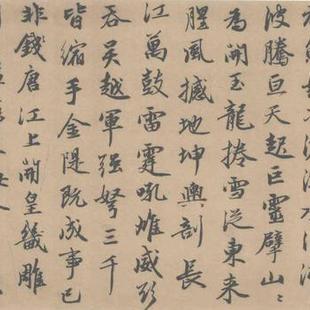 波騰亘天起巨靈擘山〻
為開玉龍捲雪從東来
腥風撼地坤輿剖長
江萬鼓雷霆吼雄威欲
吞吴越軍强弩三千
皆縮手金隄既成事已
非錢唐江上開皇畿雕